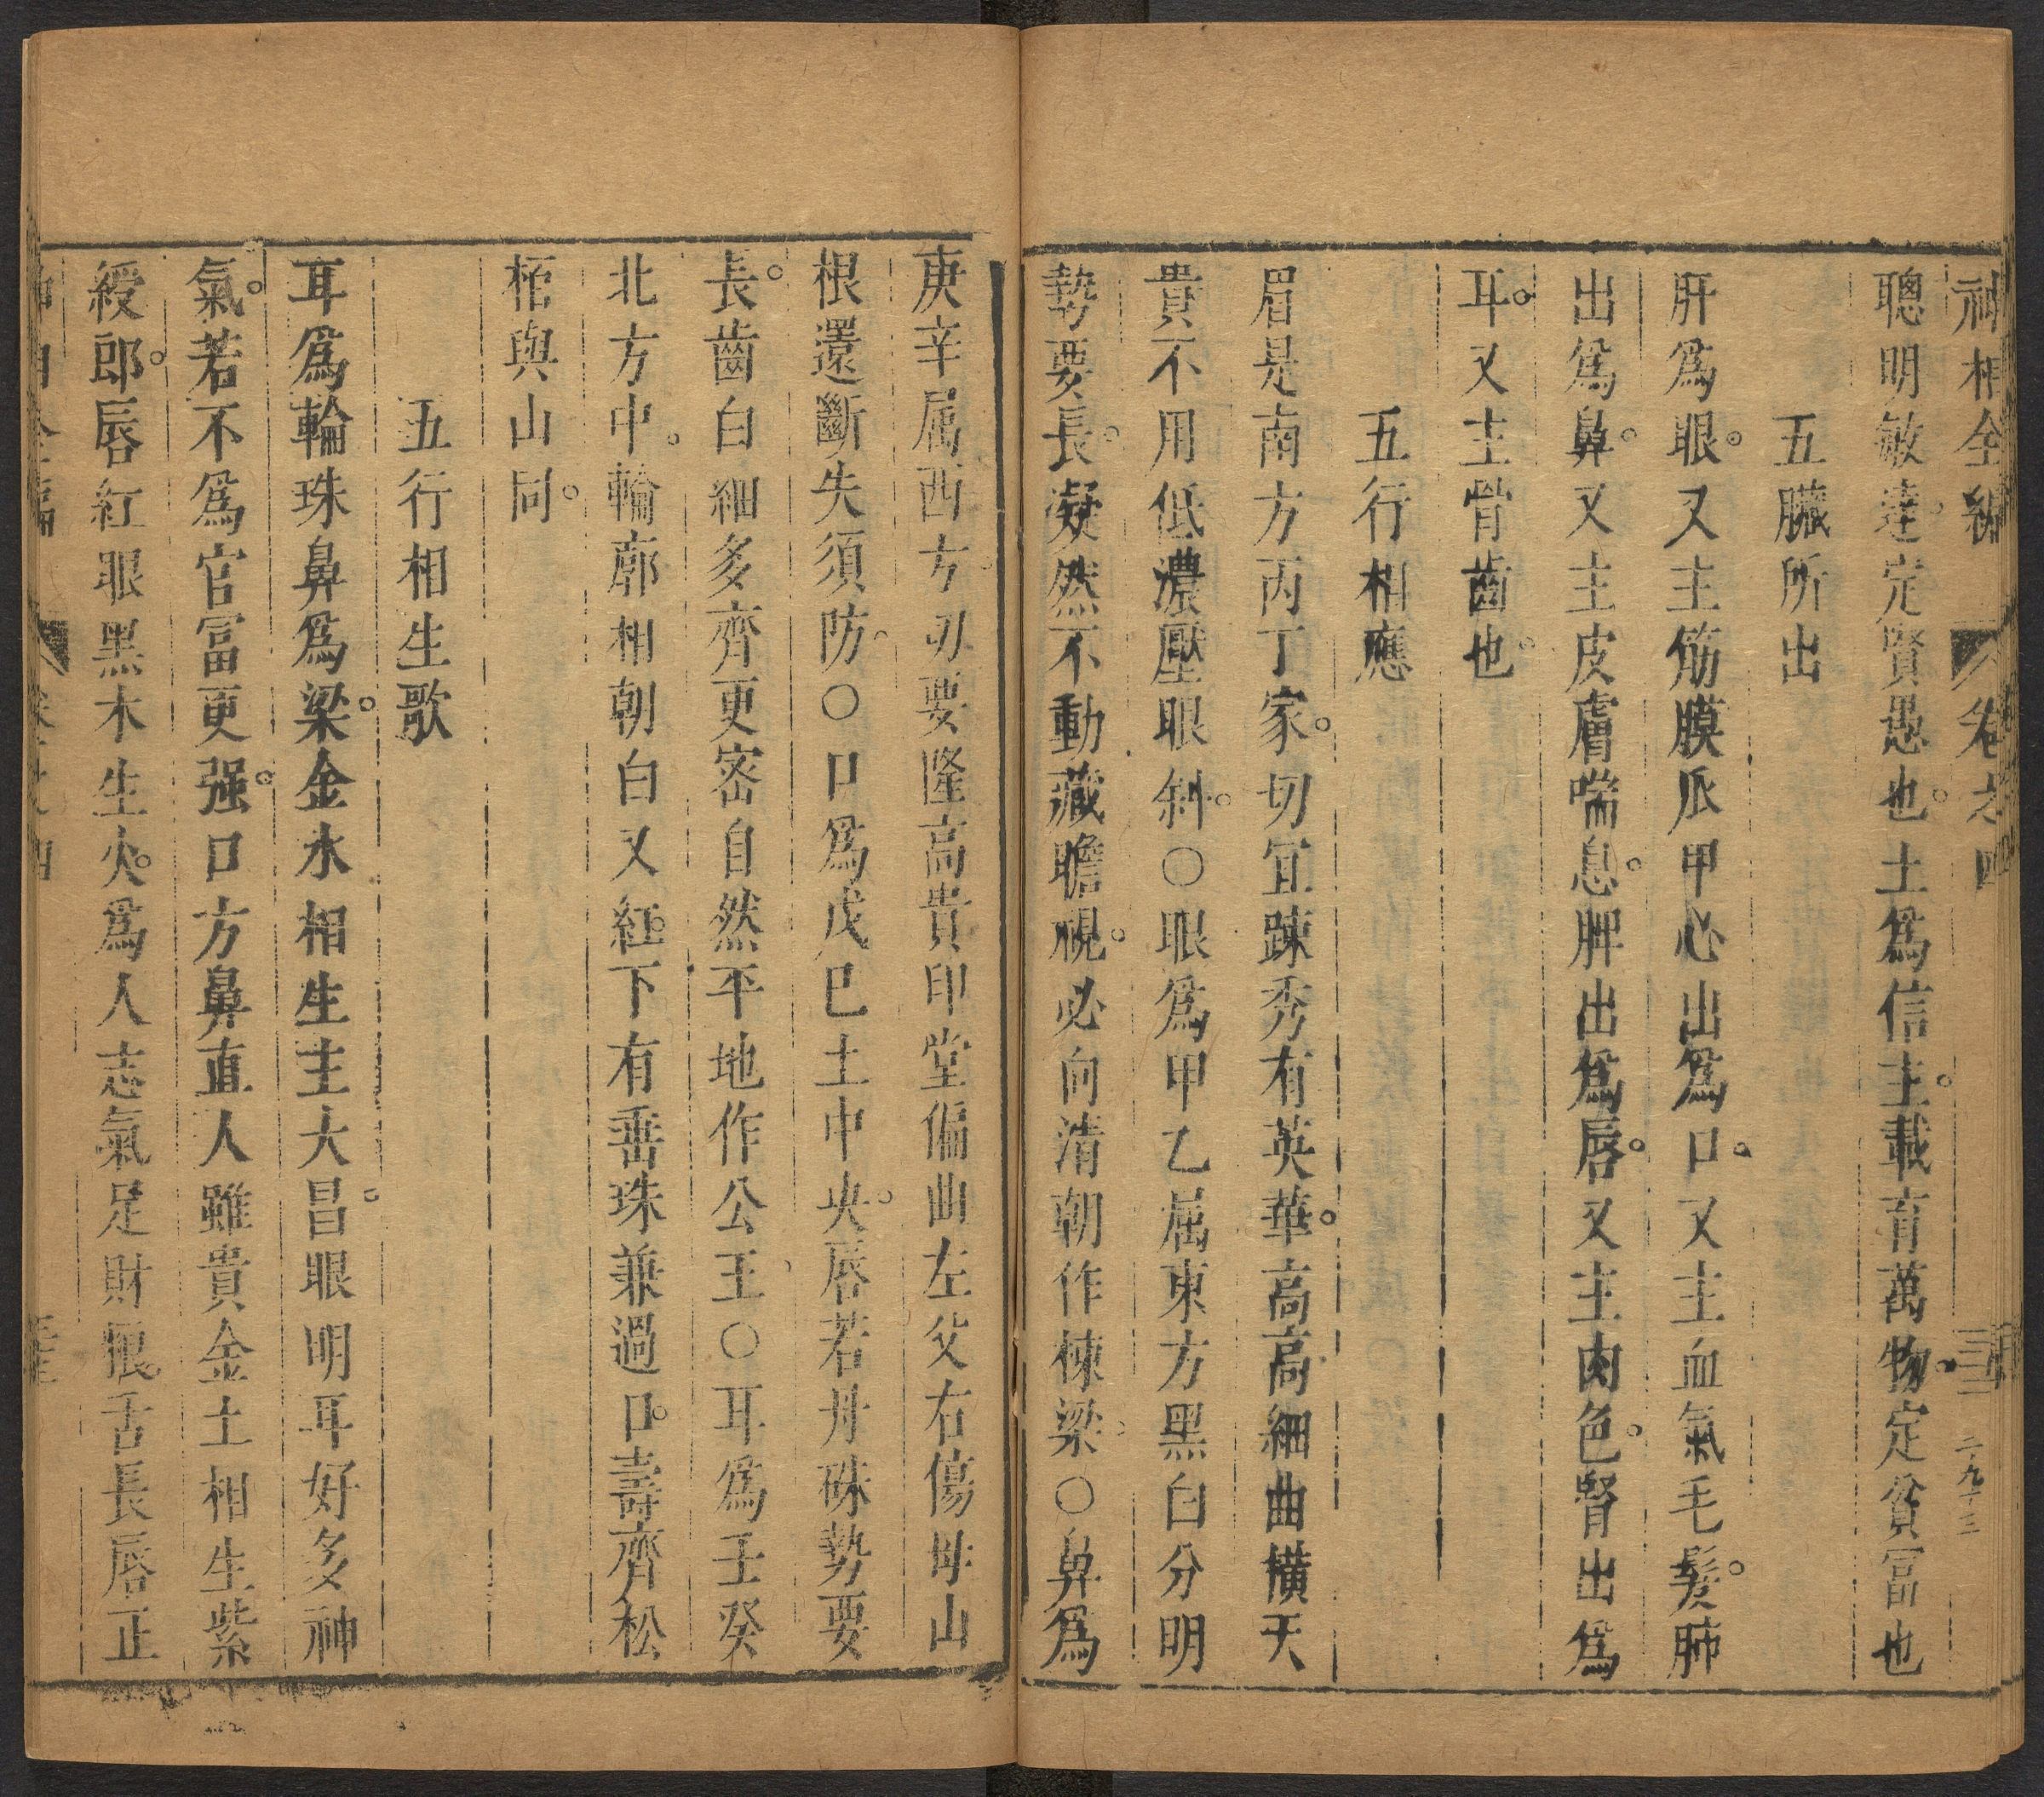 神相全編 卷之四
聰明敏達定賢愚也。土爲信主。載育萬物。定貧冨也
五臟所出
肝爲眼。又主筋膜爪甲心出爲口。又主血氣毛髮。肺
出爲鼻。又主皮膚喘息。脾出爲唇。又主肉色。腎出爲
耳。又主骨齒也。
五行相應
眉是南方丙丁家。切宜踈秀有英華。高高細曲橫天
貴不用低濃壓眼斜。〇眼爲甲乙屬東方黑白分明
勢要長。凝然不動藏瞻視。必向清朝作棟梁〇鼻爲
庚辛属西方刃要隆高貴印堂偏曲左父右傷母山
根還斷失須防。〇口爲戊巳土中央。唇若丹硃勢要
長。齒白細多齊更宻自然平地作公王〇耳爲壬癸
北方中。輪廓相朝白又紅。下有垂珠兼過口。壽齊松
栢與山同。
五行相生歌
耳爲輪珠鼻爲梁。金水相生主大昌。眼明耳好多神
氣。若不爲官冨更强。口方鼻直人雖貴金土相生紫
綬郎。唇紅眼黑木生火。爲人志氣足財粮。舌長唇正